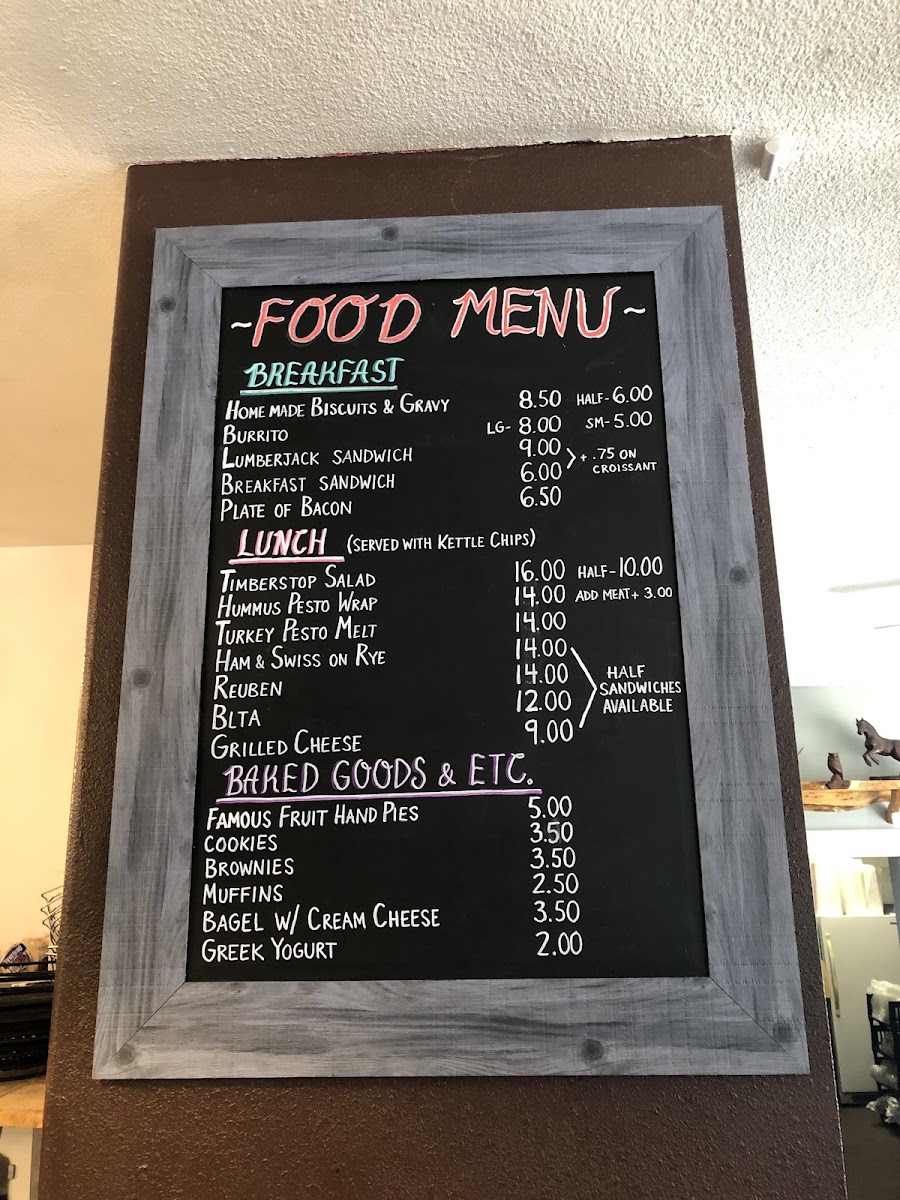 ~FOOD MENU~
BREAKFAST
HOME MADE BISCUITS & GRAVY 8.50 HALF-6.00
BURRITO LG- 8.00 SM-5.00
LUMBERJACK SANDWICH 9.00
BREAKFAST SANDWICH 6.00
+ .75 ON
CROISSANT
PLATE OF BACON 6.50
LUNCH (SERVED WITH KETTLE CHIPS)
TIMBERSTOP SALAD 16.00 HALF-10.00
HUMMUS PESTO WRAP 14.00 ADD MEAT + 3.00
TURKEY PESTO MELT 14.00
HAM & SWISS ON RYE 14.00
REUBEN 14.00
BLTA 12.00
GRILLED CHEESE 9.00
HALF
SANDWICHES
AVAILABLE
BAKED GOODS & ETC.
FAMOUS FRUIT HAND PIES 5.00
COOKIES 3.50
BROWNIES 3.50
MUFFINS 2.50
BAGEL W/ CREAM CHEESE 3.50
GREEK YOGURT 2.00